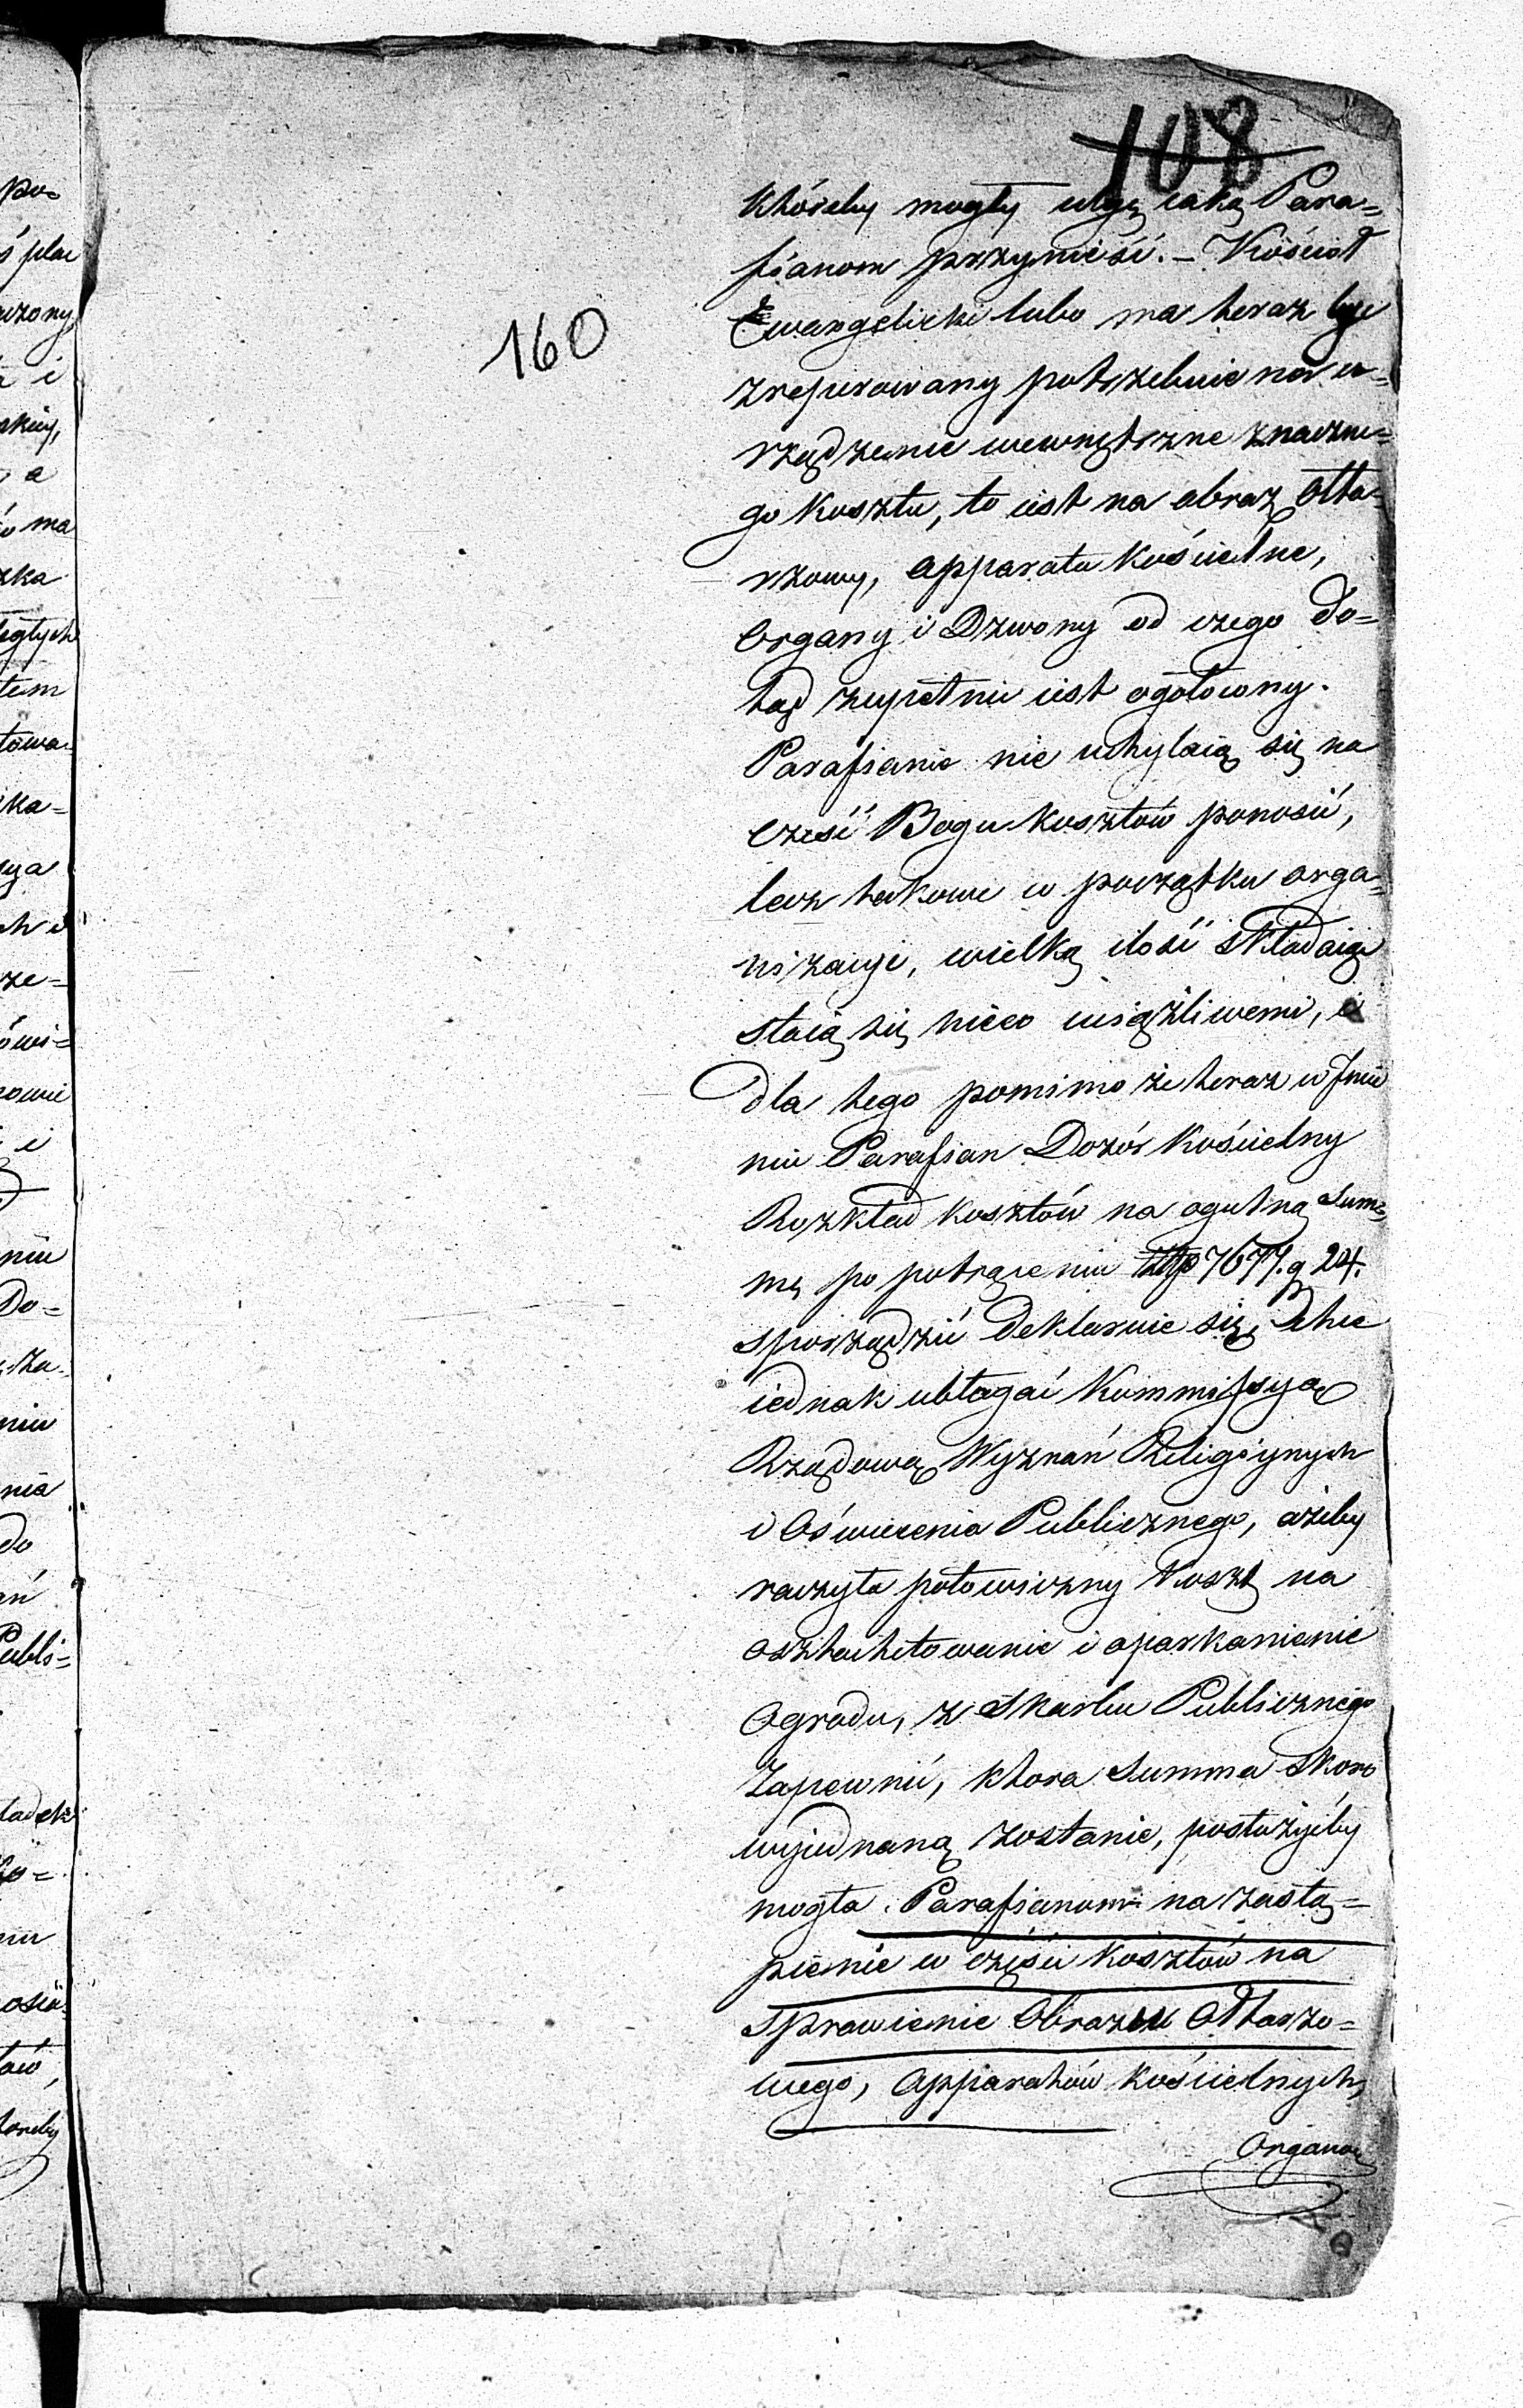 108
160
któreby mogły ulgę iaką Para=
fianom przynieść. – Kościoł
Ewangelicki lubo ma teraz być
zreperowany potrzebuie na u=
rządzenie wewnętrzne znaczne=
go kosztu, to iest na obraz Ołta=
rzowy, apparata kościelne,
Organy i Dzwony od czego do=
tąd zupełnie iest ogołocony.
Parafianie nie uchylaią się na
cześć Bogu kosztów ponosić,
lecz takowe w początku orga=
nizacyi, wielką ilość składaiąc
staią się nieco uciążliwemi, i
dla tego pomimo że teraz w Jmie
niu Parafian Dozór Kościelny
Rozkład kosztów na ogulną Sum=
mę po potrąceniu Złtp 7677. g 24.
sporządzić deklaruie się, chce
iednak ubłagać Kommissyą
Rządową Wyznań Religiynych
i Oświecenia Publicznego, ażeby
raczyła połowiczny Koszt na
osztachetowanie i oparkanienie
Ogrodu, z Skarbu Publicznego
Zapewnić, ktora Summa skoro
wyiednaną zostanie, posłużyćby
mogła Parafianom na zastą=
pienie w części kosztów na
Sprawienie Obrazu Ołtarzo=
wego, apparatów kościelnych,
Organow